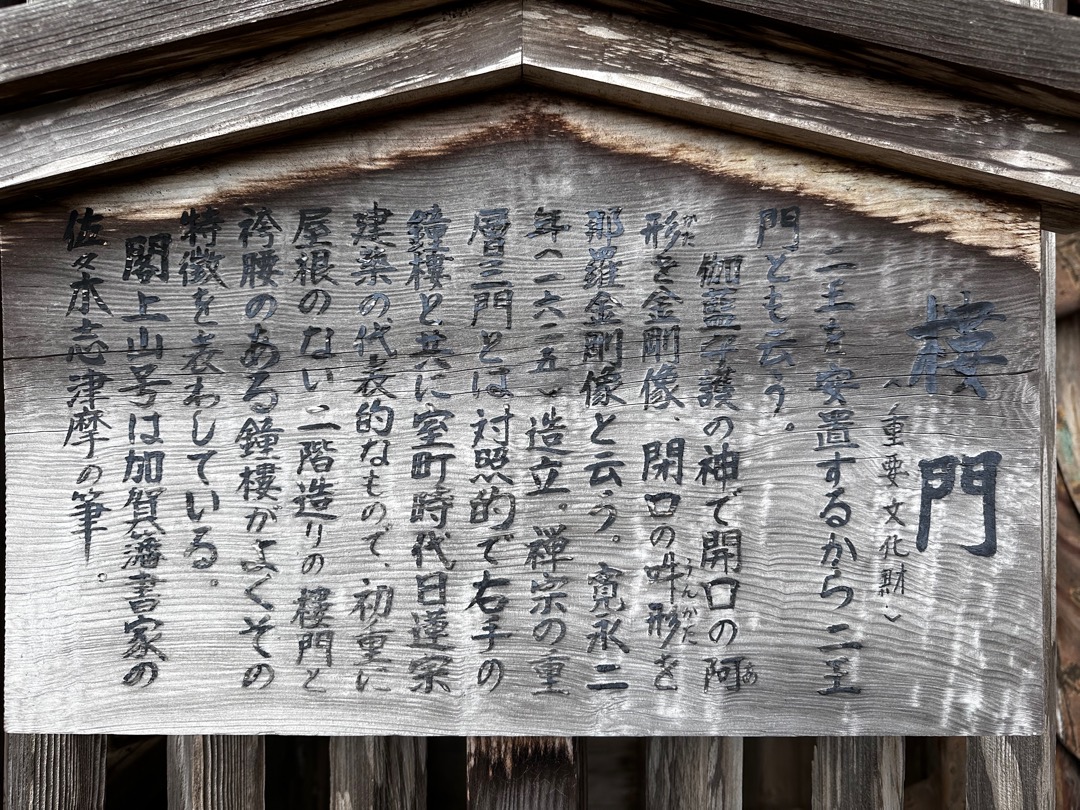 楼門
（重要文化財）
二王を安置するから二王
門とも云う。
伽藍守護の神で開口の阿
形を金剛像、閉口の吽形を
那羅金剛像と云う。寛永二
年（一六二五）造立。禅宗の重
層三門とは対照的で右手の
鐘楼と共に室町時代日蓮宗
建築の代表的なもので、初重に
屋根のない二階造りの楼門と
袴腰のある鐘楼がよくその
特徴を表わしている。
閣上山号は加賀藩書家の
佐々木志津摩の筆。